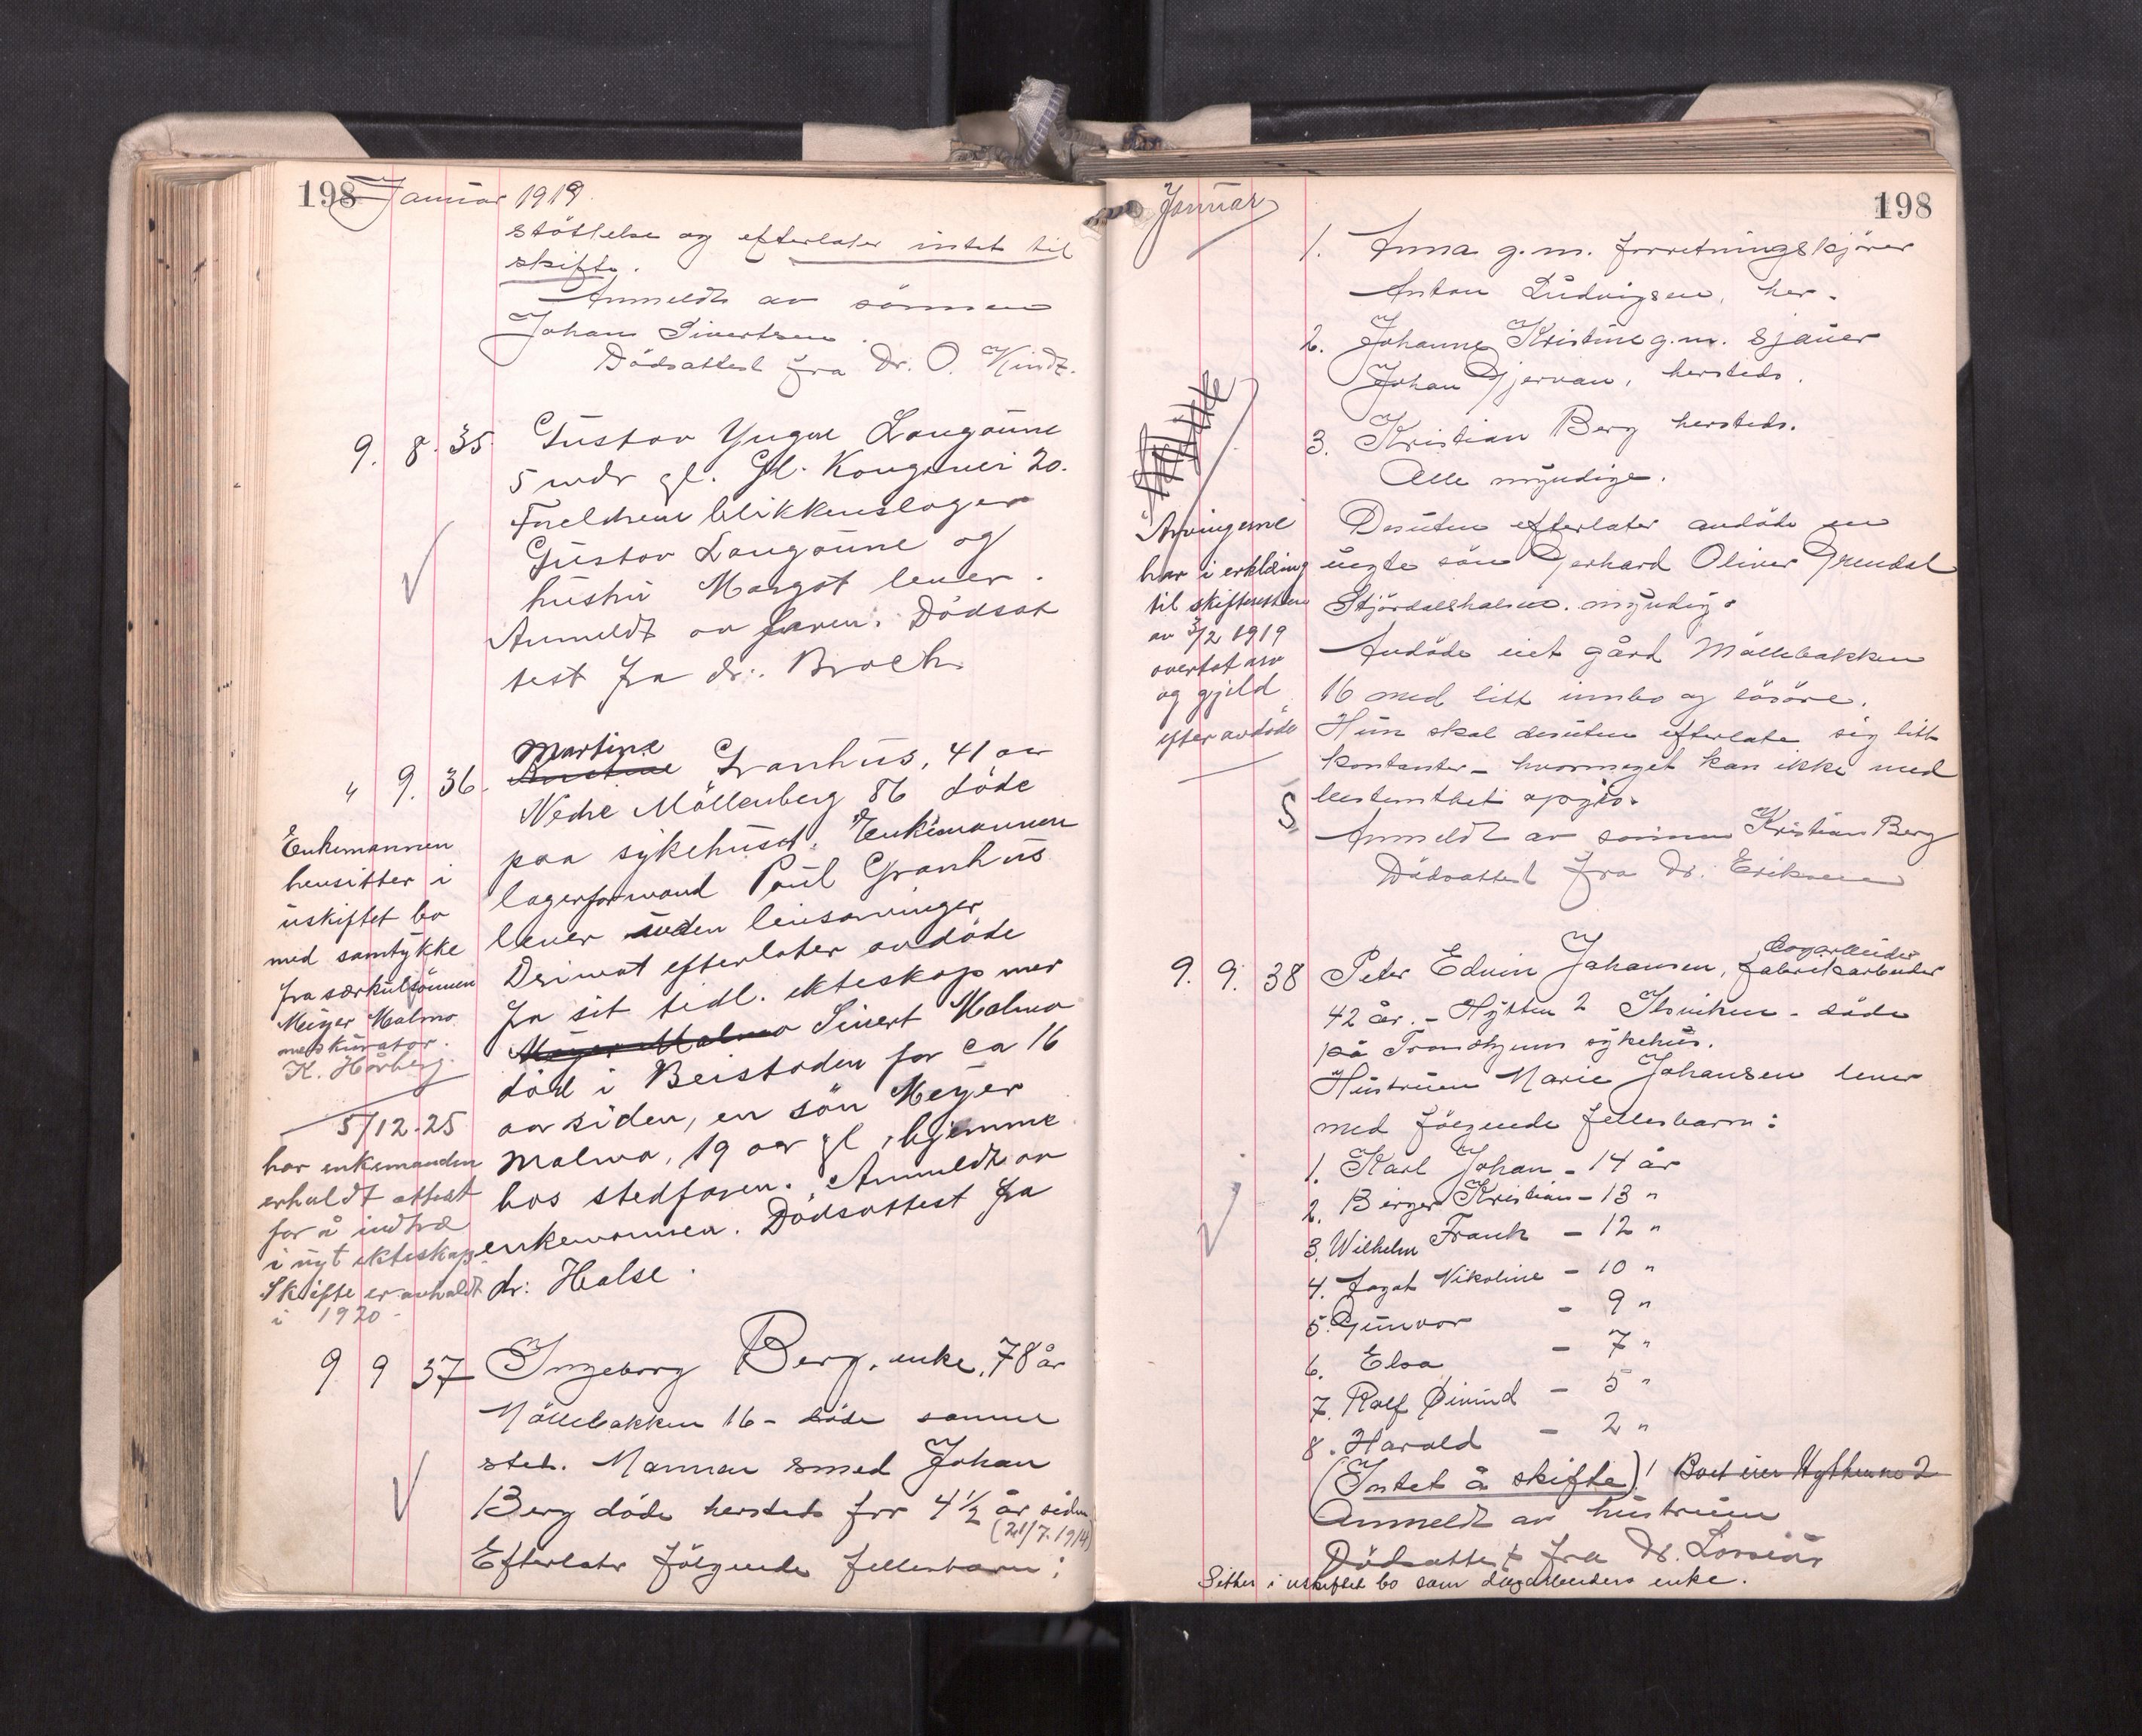 198 Januar 1919
støttelse og efterlater intet til
skifte.
Anmeldt av sønnen
Johan Sivertsen.
Dödsattest fra Dr. O. Kindt.
9. 8. 35 Gustav Yngve Langöune
5 mdr gl. Gl. Kongevei 20.
Foreldrene blikkenslager
Gustav Langöune og
hustru Margot lever.
Anmeldt av faren. Dödsat
test fra dr. Broch
Martine
" 9. 36. Granhus, 41 aar
Nedre Möllenberg 86 döde
paa sykehuset. Enkemannen
lagerformand Paul Granhus
lever uden livsarvinger
Desuut efterlater avdöde
fra sit tidl. ekteskap mer
Meyer Malmo Sivert Malmo
död i Beistaden for ca 16
aar siden, en sön Meyer
Malmo, 19 aar gl, hjemme
hos stedfaren. Anmeldt av
enkemannen. Dödsattest fra
dr: Halse.
Enkemannen
hensitter i
uskiftet bo
med samtykke
fra særkulsönnen
Meyer Malmo
med kurator.
K. Hårberg.
5/12.25
har enkemanden
erholdt attest
for å indtræ
i nyt ekteskap.
Skifte er avholdt
i 1920-
9 9 37 Ingeborg Berg, enke, 78 år
Möllebakken 16 - döde samme
sted. Mannen smed Johan
Berg döde hersteds for 4 1/2 år siden
(21/7. 1914)
Efterlater fölgende fellesbarn:
Januar 198
1. Anna g.m. forretningskjörer
Anton Ludvigsen, her.
2. Johanne Kristine g.m. sjauer
Johan Gjervan, hersteds.
3. Kristian Berg hersteds.
Alle myndige.
Desuten efterlater avdöde en
uegte sön Gerhard Oliver Grendal
Stjördalshalsen. myndig.
Avdöde eiet gård Möllebakken
16 med litt innbo og lösöre.
Hun skal desuten efterlate sig litt
kontanter - hvormeget kan ikke med
bestemthet opgis.
S
Anmeldt av sönnen Kristian Berg
Dödsattest fra Dr. Eriksen
Arvingerne
har i erklæring
til skifteretten
av 3/2 1919
overtat arv
og gjeld
efter avdöde
9. 9. 38 Peter Edvin Johansen, fabrikarbeider
dagarbeider
42 år. - Hytten 2 Ilsviken - döde
på Trondhjems sykehus.
Hustruen Marie Johansen lever
med fölgende fellesbarn:
1. Karl Johan - 14 år
2. Birger Kristian - 13 "
3. Wilhelm Frank - 12 "
4. Nikoline - 10 "
5. Gunvor - 9 "
6. Elsa - 7 "
7. Rolf Øivind - 5 "
8. Harald - 2 "
(Intet å skifte)! Boet eier Hytten no 2
Anmeldt av hustruen
Dödsattest fra Dr. Lossius
Sitter i uskiftet bo som dagarbeiders enke.